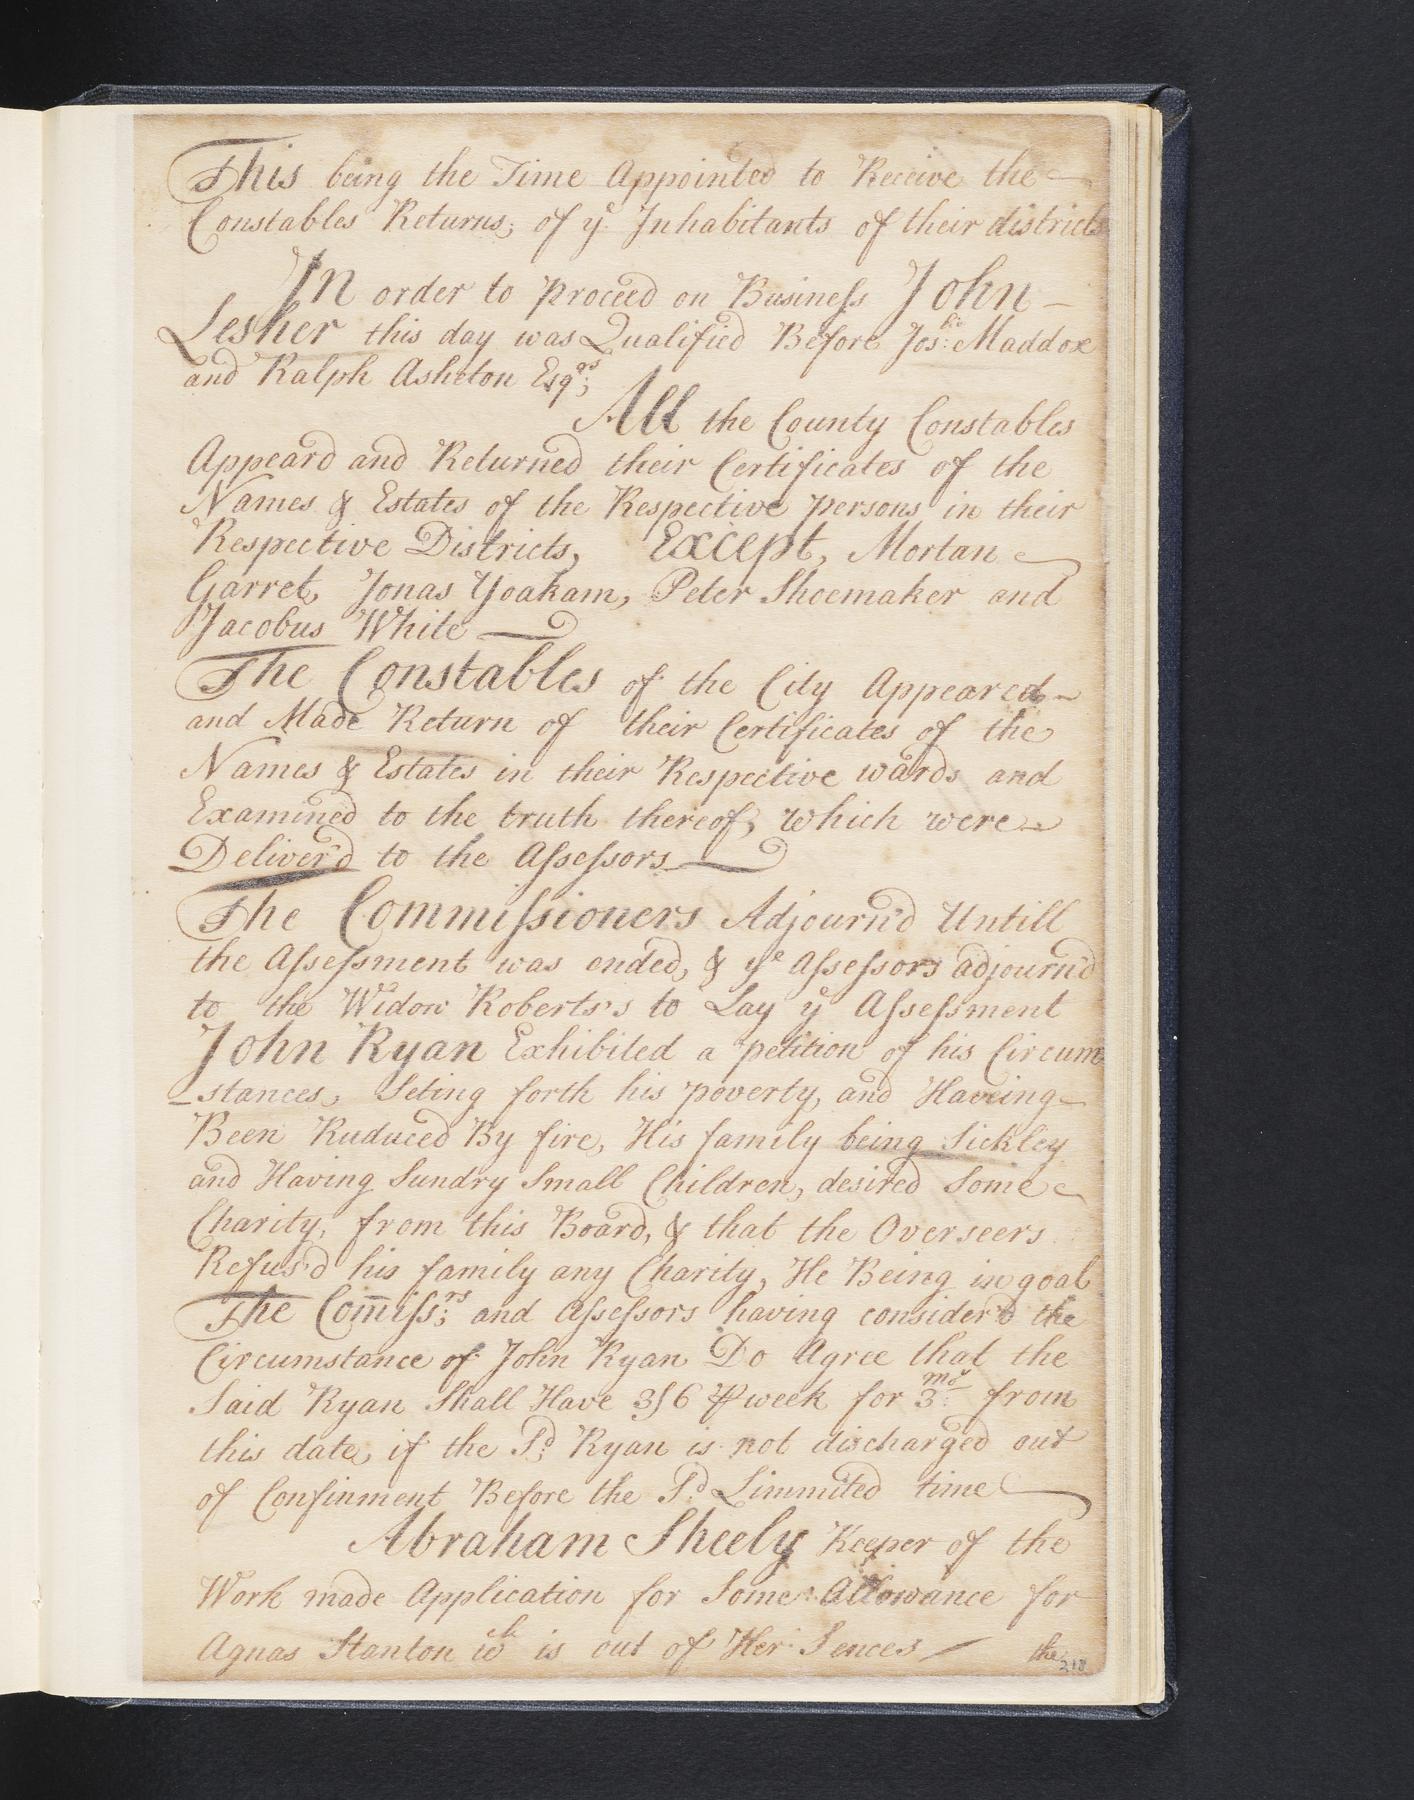 This being the Time Appointed to Receive the
Constables Returns; of yᵉ Inhabitants of their districts
In order to proceed on Business John
Lesher this day was Qualified Before Josʰ: Maddox
and Ralph Asheton Esqʳˢ;
All the County Constables
Appeard and Returned their Certificates of the
Names & Estates of the Respective persons in their
Respective Districts, Except, Mortan
Garret, Jonas Yoakam, Peter Shoemaker and
Jacobus White
The Constables of the City Appeared
and Made Return of their Certificates of the
Names & Estates in their Respective wards and
Examined to the truth thereof, which were
Deliver'd to the Assessors
The Commissioners Adjourn'd Untill
the Assessment was ended, & yᵉ Assessors adjourn'd
to the Widow Roberts's to Lay yᵉ Assessment
John Ryan Exhibited a petition of his Circum
-stances, Seting forth his poverty, and Haveing
Been Ruduced By fire, His family being Sickley
and Having Sundry Small Children, desired Some
Charity, from this Board, & that the Overseers
Refus'd his family any Charity, He Being in goal
The Com̅issʳˢ; and Assessors having consider'd the
Circumstance of John Ryan Do Agree that the
Said Ryan Shall Have 3/6 ⅌ week for 3 ᵐᵒ: from
this date, if the Sᵈ: Ryan is not discharged out
of Confinment Before the Sᵈ: Limmited time
Abraham Sheely Keeper of the
Work made Application for Some Allowance for
Agnas Stanton wᶜʰ is out of Her Sences / the
218